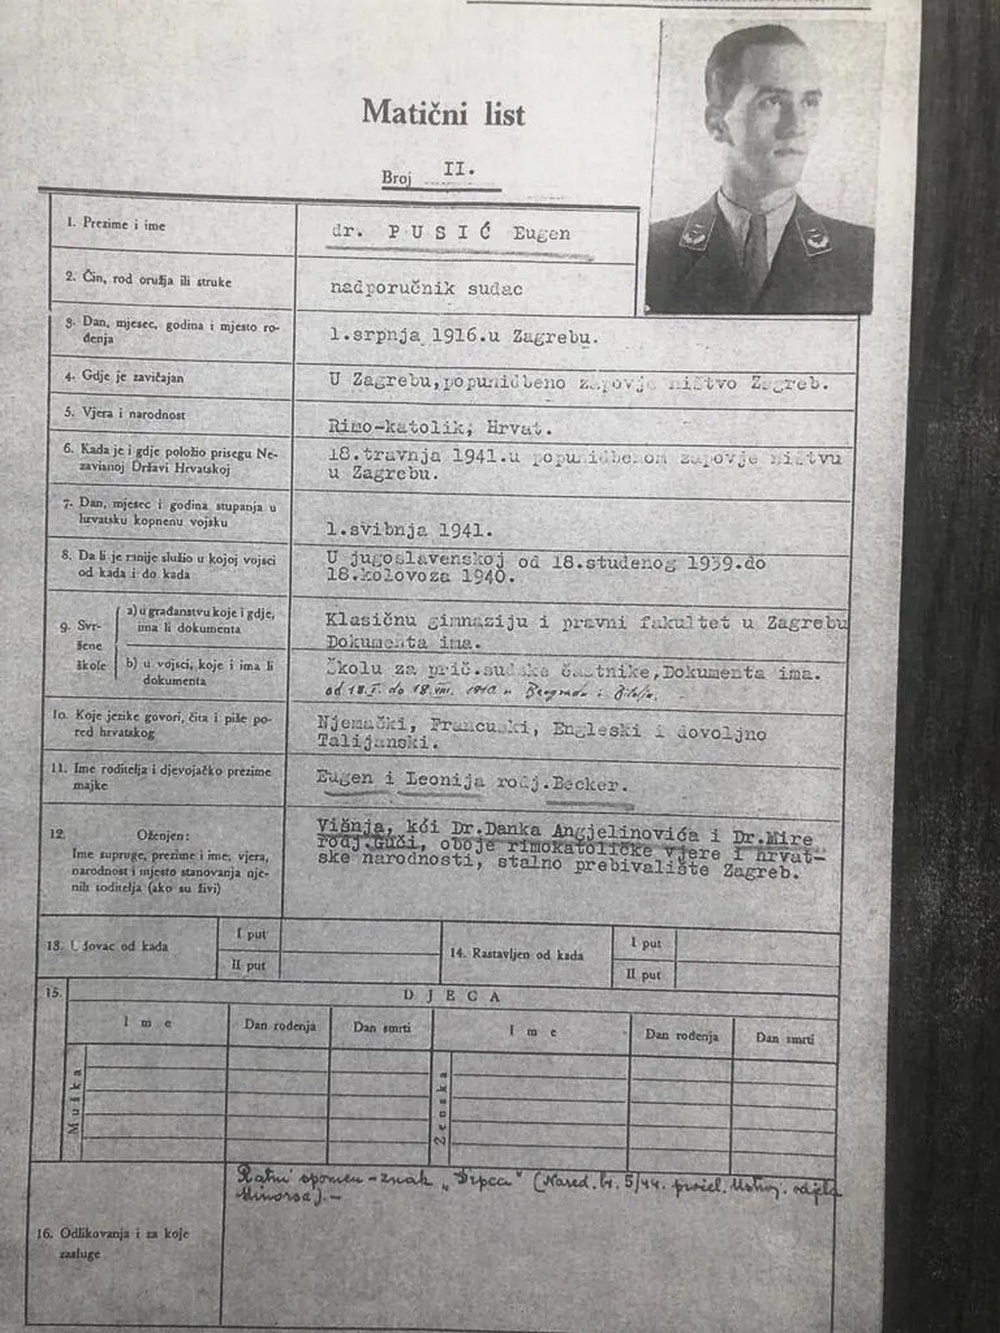 Matični list
Broj II.
1. Prezime i ime
dr. PUSIĆ Eugen
2. Čin, rod oružja ili struke
nadporučnik sudac
3. Dan, mjesec, godina i mjesto ro-
đenja
1.srpnja 1916.u Zagrebu.
4. Gdje je zavičajan
U Zagrebu,popunidbeno zapovjedničtvo Zagreb.
5. Vjera i narodnost
Rimo-katolik, Hrvat.
6. Kada je i gdje položio prisegu Ne-
zavisnoj Državi Hrvatskoj
18.travnja 1941.u popunidbenom zapovjedničtvu
u Zagrebu.
7. Dan, mjesec i godina stupanja u
hrvatsku kopnenu vojsku
1.svibnja 1941.
8. Da li je ranije služio u kojoj vojsci
od kada i do kada
U jugoslavenskoj od 18.studenog 1939.do
18.kolovoza 1940.
9. Svr-
šene
škole
a) u građanstvu koje i gdje,
ima li dokumenta
Klasičnu gimnaziju i pravni fakultet u Zagrebu
Dokumenta ima.
b) u vojsci, koje i ima li
dokumenta
Školu za prič.sudske častnike,Dokumenta ima.
od 18.I. do 18.VIII. 1940 u Beogradu i Bitolju.
10. Koje jezike govori, čita i piše po-
red hrvatskog
Njemački, Francuski, Engleski i dovoljno
Talijanski.
11. Ime roditelja i djevojačko prezime
majke
Eugen i Leonija rodj.Becker.
12.
Oženjen:
Ime supruge, prezime i ime, vjera,
narodnost i mjesto stanovanja nje-
nih roditelja (ako su živi)
Višnja, kći Dr.Danka Angjelinovića i Dr.Mire
rodj.Guči, oboje rimokatoličke vjere i hrvat-
ske narodnosti, stalno prebivalište Zagreb.
13. Udovac od kada
I put
II put
14. Rastavljen od kada
I put
II put
15.
DJECA
Ime
Dan rođenja
Dan smrti
Ime
Dan rođenja
Dan smrti
Muška
Ženska
16. Odlikovanja i za koje
zasluge
Ratni spomen-znak (Nared. br. 5/44. Ustroj. odjela
Minorsa).-